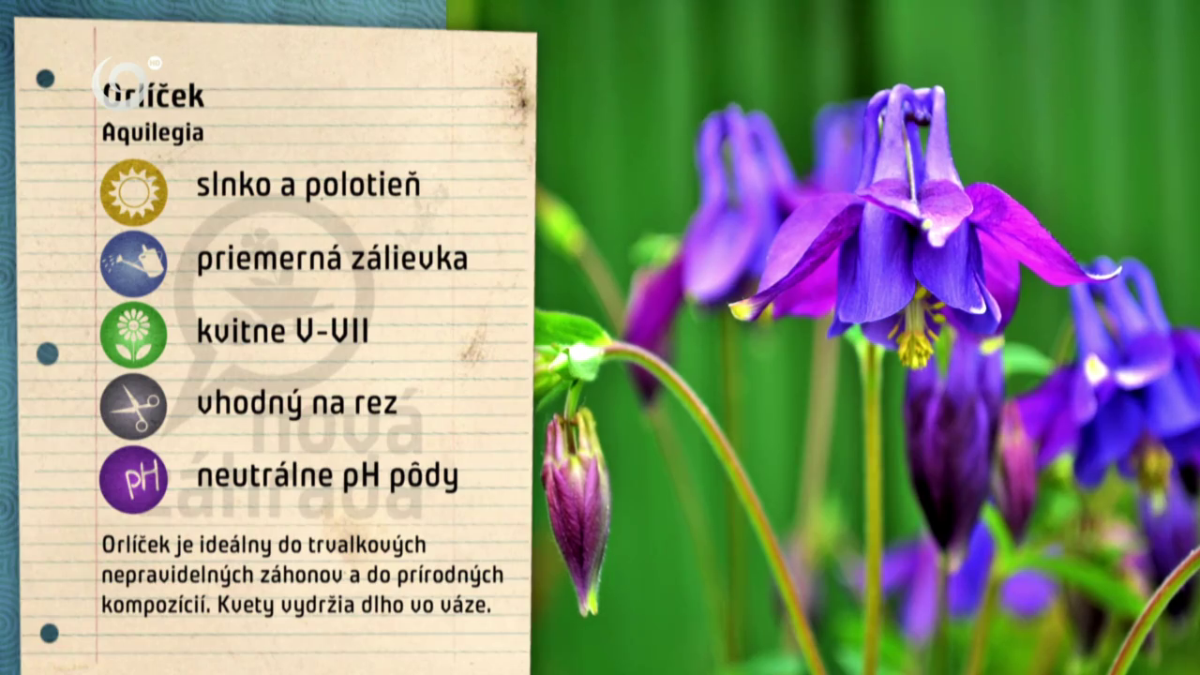 Orlíček
Aquilegia
slnko a polotieň
priemerná zálievka
kvitne V-VII
vhodný na rez
nová
pH
neutrálne pH pôdy
záhrada
Orlíček je ideálny do trvalkových
nepravidelných záhonov a do prírodných
kompozícií. Kvety vydržia dlho vo váze.